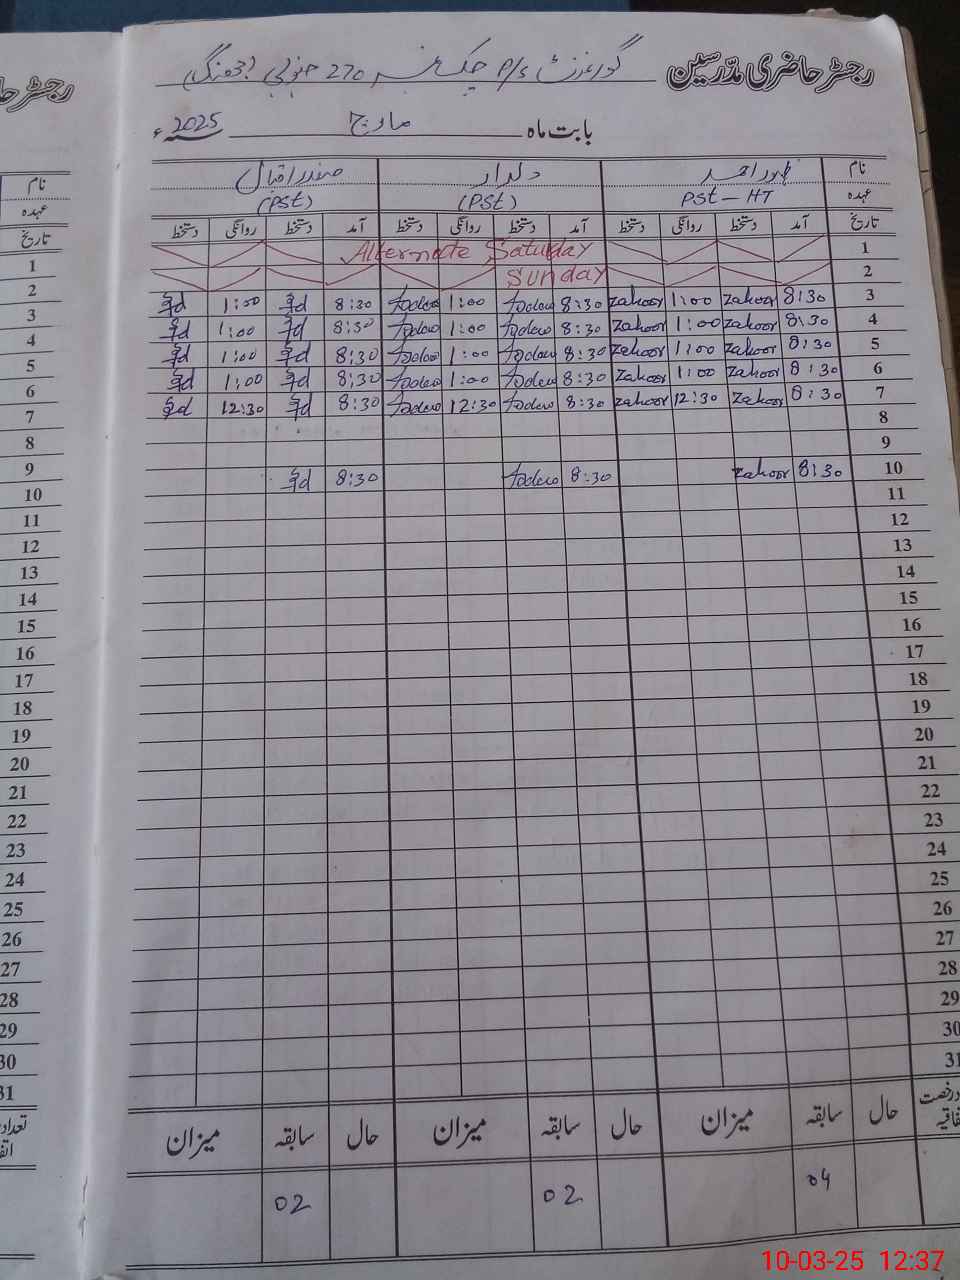 رجسٹر حاضری مدرسین گورنمنٹ P/S چک نمبر 270 جنوبی
بابت ماہ مارچ 2025ء
نام ظہور احمد دلدار صفدر اقبال
عہدہ PST - HT (PST) (PST)
تاریخ آمد دستخط روانگی دستخط آمد دستخط روانگی دستخط آمد دستخط روانگی دستخط
1 Alternate Saturday
2 Sunday
3 8:30 zahoor 1:00 zahoor 8:30 1:00 8:30 1:00
4 8:30 zahoor 1:00 zahoor 8:30 1:00 8:30 1:00
5 8:30 zahoor 1:00 zahoor 8:30 1:00 8:30 1:00
6 8:30 zahoor 1:00 zahoor 8:30 1:00 8:30 1:00
7 8:30 zahoor 12:30 zahoor 8:30 12:30 8:30 12:30
8
9
10 8:30 zahoor 8:30 8:30
11
12
13
14
15
16
17
18
19
20
21
22
23
24
25
26
27
28
29
30
31
حال سابقہ میزان حال سابقہ میزان حال سابقہ میزان
04 02 02
رجسٹر
نام
عہدہ
تاریخ
1
2
3
4
5
6
7
8
9
10
11
12
13
14
15
16
17
18
19
20
21
22
23
24
25
26
27
28
29
30
31
تعداد
10-03-25 12:37